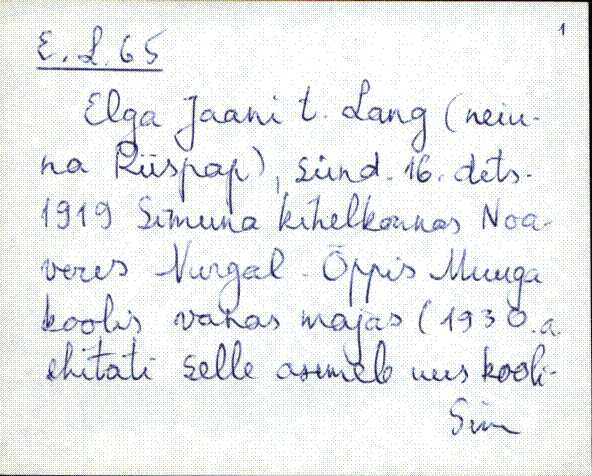 1
E. L. 65
Elga Jaani t. Lang (neiu-
na Riispap), sünd. 16. dets.
1919 Simuna kihelkonnas Noa-
veres Nurgal. Õppis Muuga
koolis vanas majas (1930. a.
ehitati selle asemele uus kooli-
Sim